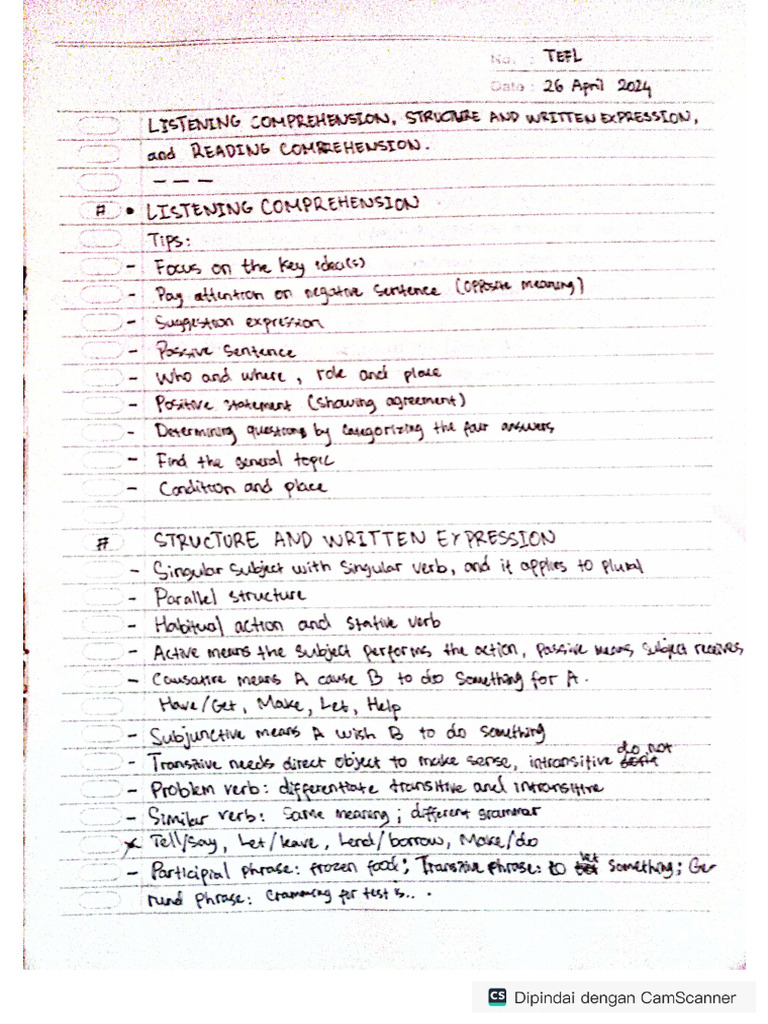 No. : TEFL
Date : 26 April 2024
LISTENING COMPREHENSION, STRUCTURE AND WRITTEN EXPRESSION,
and READING COMPREHENSION.
– – –
# • LISTENING COMPREHENSION
Tips:
- Focus on the key idea(s)
- Pay attention on negative sentence (opposite meaning)
- Suggestion expression
- Passive sentence
- Who and where, role and place
- Positive statement (showing agreement)
- Determining questions by categorizing the four answers
- Find the general topic
- Condition and place
# STRUCTURE AND WRITTEN EXPRESSION
- Singular subject with singular verb, and it applies to plural
- Parallel structure
- Habitual action and stative verb
- Active means the subject performs the action, passive means subject receives
- Causative means A cause B to do something for A.
Have/Get, Make, Let, Help
- Subjunctive means A wish B to do something
- Transitive needs direct object to make sense, intransitive do not
- Problem verb: differentiate transitive and intransitive
- Similar verb: Same meaning; different grammar
x Tell/say, Let/leave, Lend/borrow, Make/do
- Participial phrase: frozen food; Transitive phrase: to let something; Ge-
rund phrase: Cramming for test is.. .
CS Dipindai dengan CamScanner